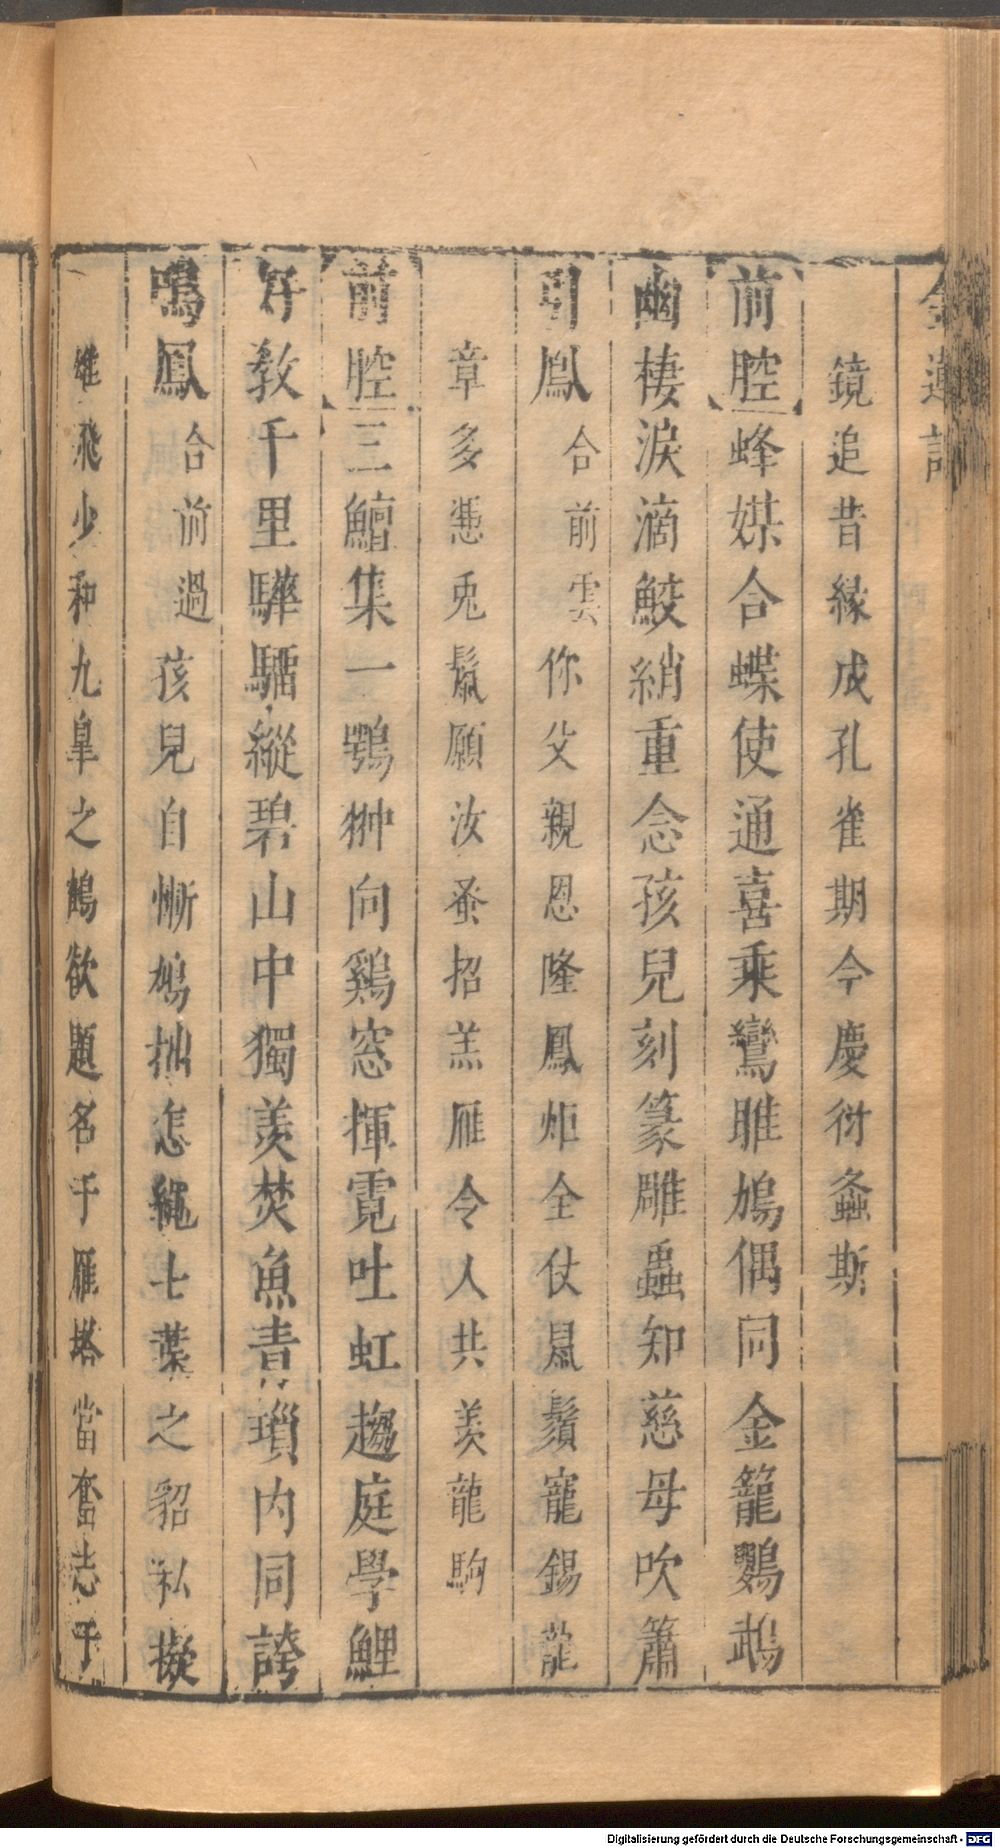 金蓮記
鏡追昔緣成孔雀期今慶衍螽斯
前腔蜂媒合蝶使通喜乘鸞雎鳩偶同金籠鸚鵡
幽棲淚滴鮫綃重念孩兒刻篆雕蟲知慈母吹簫
引鳳合前雲你父親恩隆鳳炬全仗鳧鬚寵錫龍
章多憑兎鬚願汝蚤招羔雁令人共羨龍駒
前腔三鱣集一鶚翀向鷄窓揮霓吐虹趨庭學鯉
好教千里驊騮縱碧山中獨羨焚魚青瑣内同誇
鳴鳳合前過孩兒自慚鳩拙怎繩七葉之貂私擬
雄飛少和九臯之鶴欲題名于雁塔當奮志于
Digitalisierung gefördert durch die Deutsche Forschungsgemeinschaft - DFG